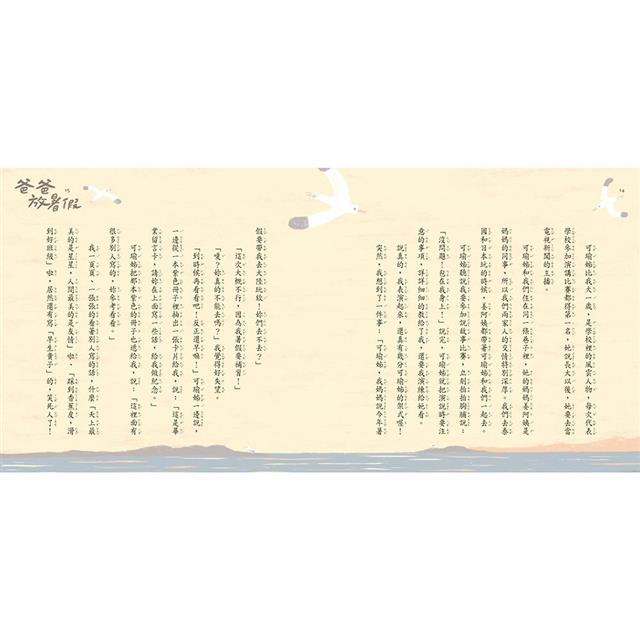 14
可瑜姊比我大一歲，是學校裡的風雲人物，每次代表
學校參加演講比賽都得第一名，她說長大以後，她要去當
電視新聞的主播。
可瑜姊和我們住在同一條巷子裡，她的媽媽姜阿姨是
媽媽的同事，所以我們兩家人的交情特特深厚。我們去泰
國和日本玩的時候，姜阿姨都帶著可瑜姊和我們一起去。
可瑜姊聽說我要參加說故事比賽，立刻拍拍胸脯說：
「沒問題！包在我身上！」說完，可瑜姊就把演說時要注
意的事項，詳詳細細的教給了我，還要我演練給她看。
說真的，我表演起來，還真有幾分可瑜姊的架式喔！
突然，我想到了一件事：「可瑜姊，我媽媽說今年暑
假要帶我去大陸玩欸！妳們去不去？」
「這次大概不行，因為我暑假要補習！」
「噢？妳真的不能去嗎？」我覺得好失望。
「到時候再看看吧！反正還早嘛！」可瑜姊一邊說，
一邊從一本紫色冊子裡抽出一張卡片給我，說：「這是畢
業留言卡，請妳在上面寫一些話，給我做紀念。」
可瑜姊把那本紫色的冊子也遞給我，說：「這裡面有
很多別人寫的，妳參考看看。」
我一頁頁、一張張的看著別人寫的話，什麼「天上最
美的是星星，人間最美的是友情」啦、「踩到香蕉皮，滑
到好班級」啦，居然還有寫「早生貴子」的，笑死人了！
15
爸爸
放暑假